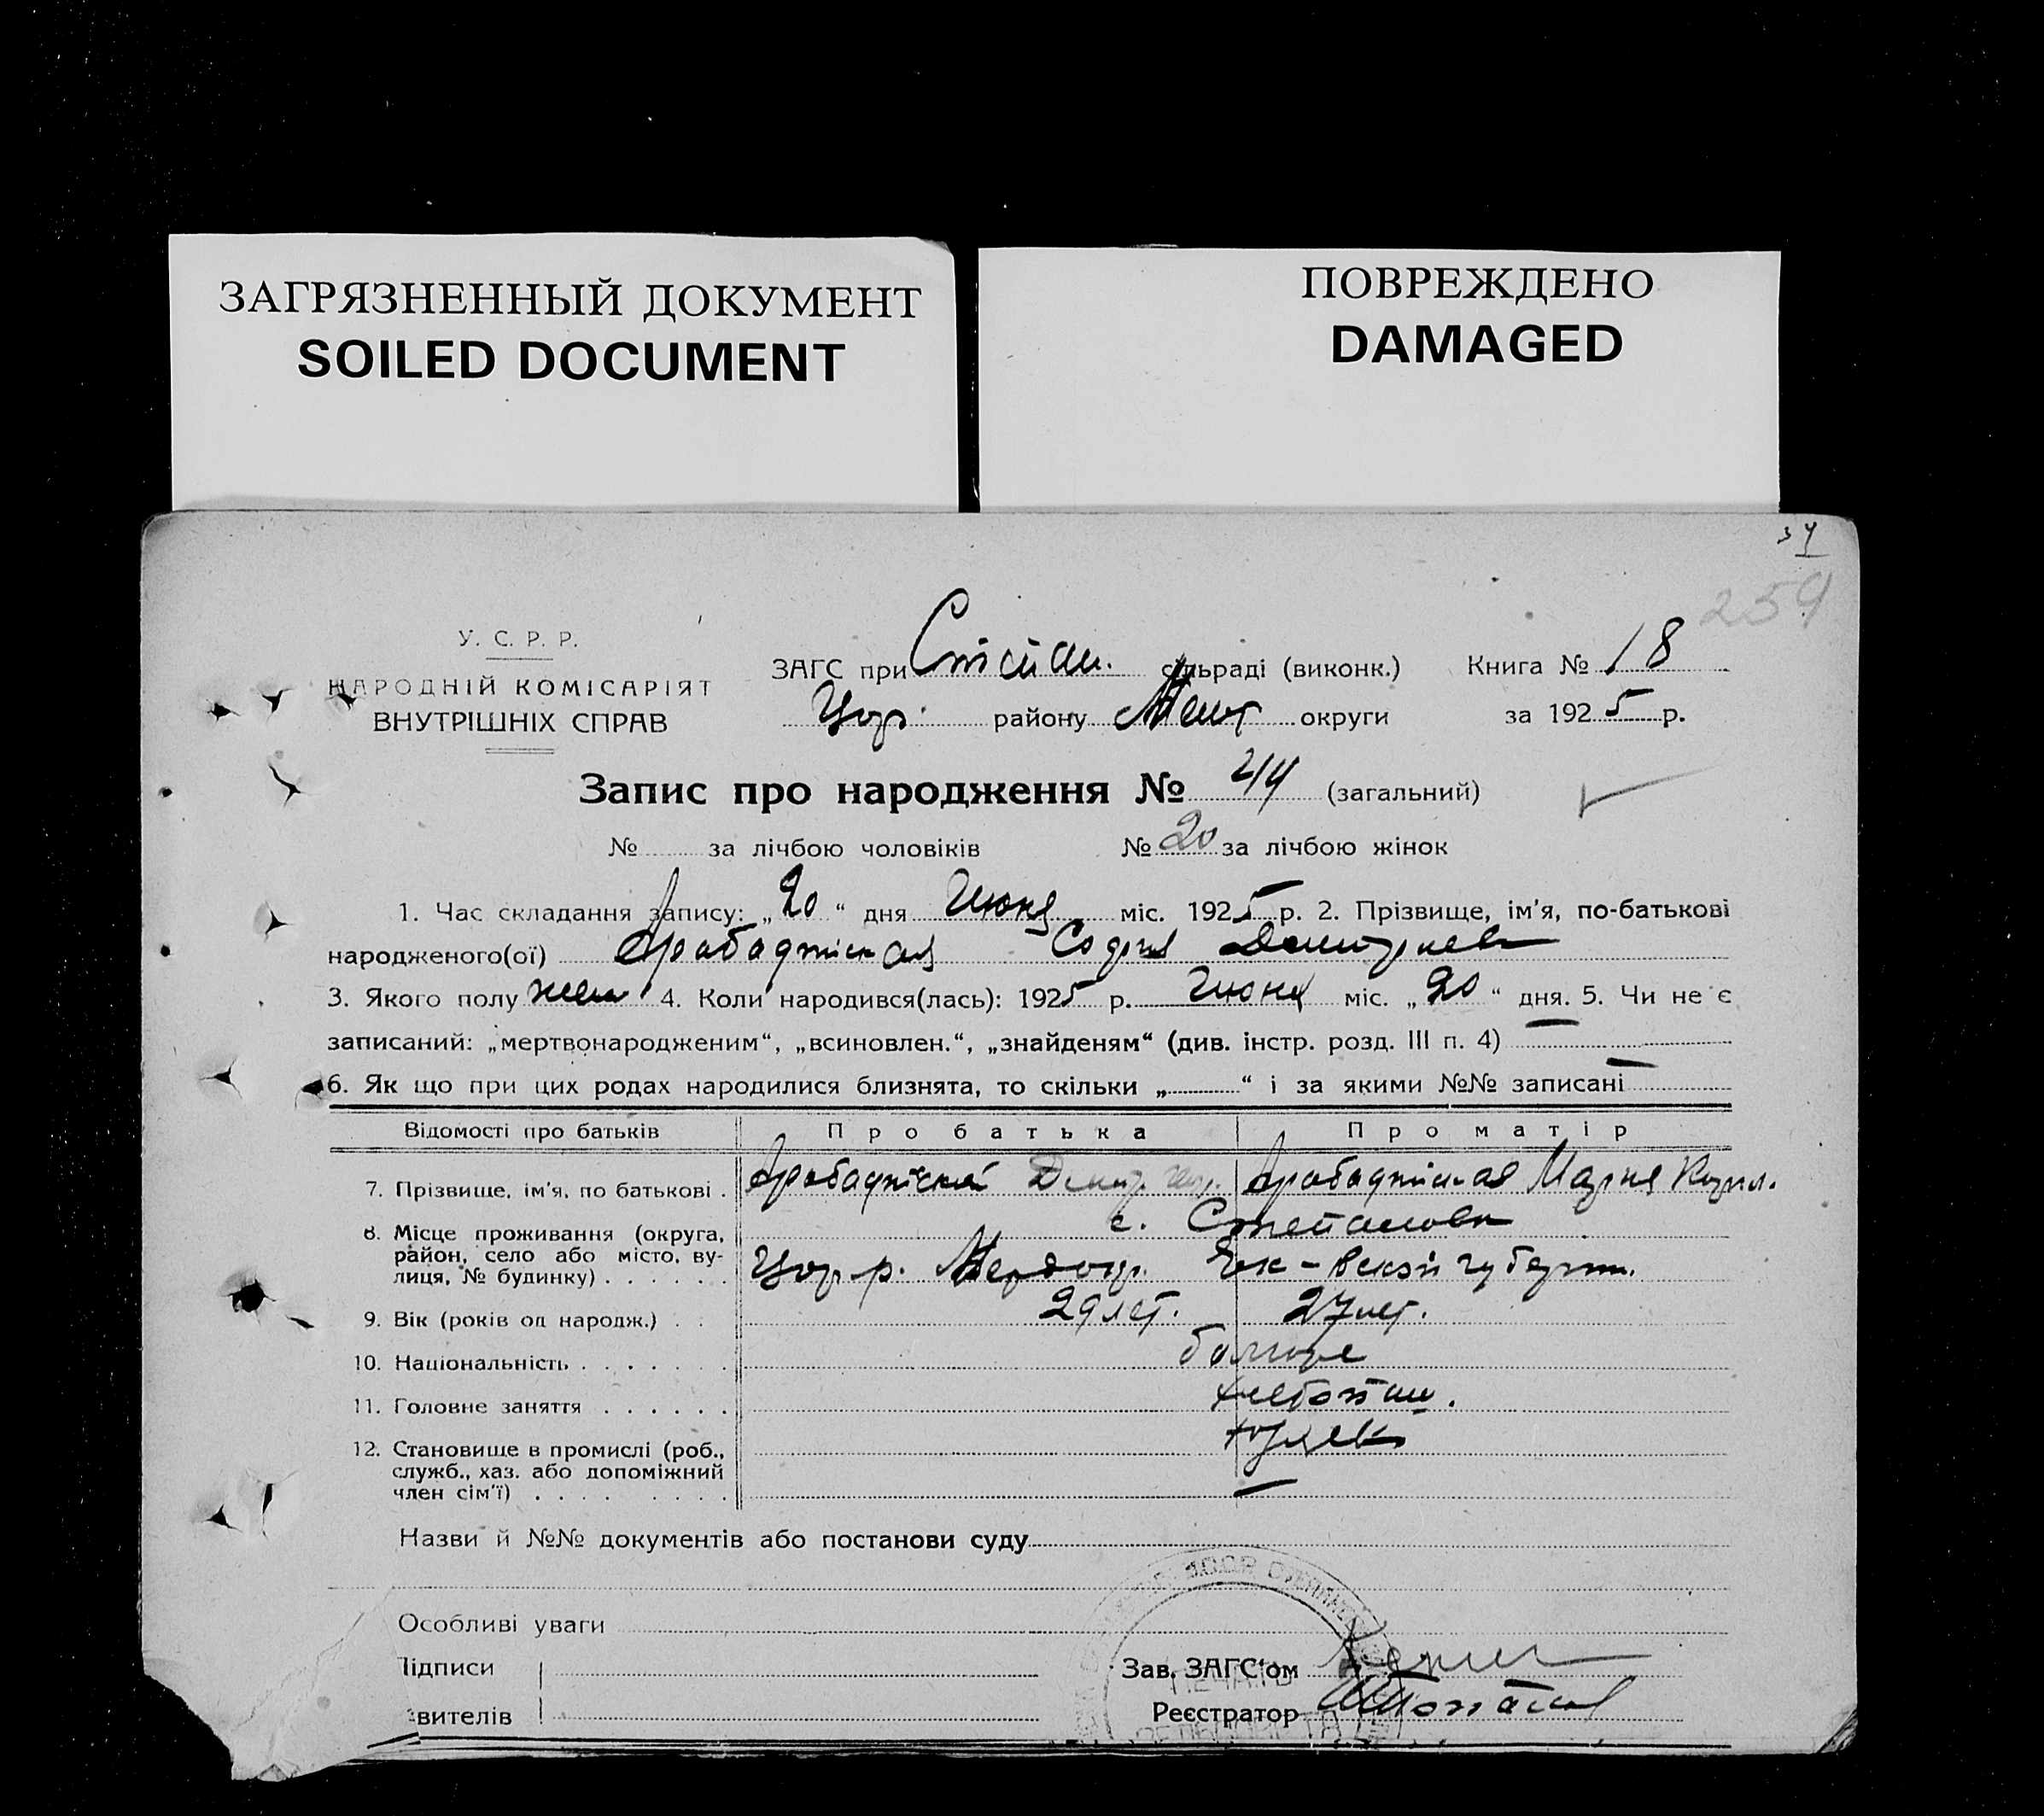 ЗАГРЯЗНЕННЫЙ ДОКУМЕНТ
SOILED DOCUMENT
ПОВРЕЖДЕНО
DAMAGED
254
У. С. Р. Р.
НАРОДНІЙ КОМІСАРІЯТ
ВНУТРІШНІХ СПРАВ
ЗАГС при сільраді (виконк.) Книга № 18
Цар. району округи за 1925 р.
Запис про народження № (загальний)
№ за лічбою чоловіків № 20 за лічбою жінок
1. Час складання запису: „20“ дня Июня міс. 1925 р. 2. Прізвище, ім'я, по-батькові
народженого(ої) Арабаджиская София
3. Якого полу жен 4. Коли народився(лась): 1925 р. Июня міс. „20“ дня. 5. Чи не є
записаний: „мертвонародженим“, „всиновлен.“, „знайденям“ (див. інстр. розд. III п. 4) —
6. Як що при цих родах народилися близнята, то скільки „ “ і за якими №№ записані —
Відомості про батьків Про батька Про матір
7. Прізвище, ім'я, по батькові . Арабаджиский Арабаджиская Мария Кирил.
8. Місце проживання (округа, район, село або місто, вулиця, № будинку) . . . . . . с. Степановка
Цар. р. Ек-вской губерн.
9. Вік (років од народж.) . . 29 лет. 27 лет.
10. Національність . . . . . . . болгаре
11. Головне заняття . . . . . . хлебопаш.
12. Становище в промислі (роб., служб., хаз. або допоміжний член сім'ї) . . . . . . . . —
Назви й №№ документів або постанови суду
Особливі уваги
Підписи
Зав. ЗАГС'ом
явителів
Реєстратор